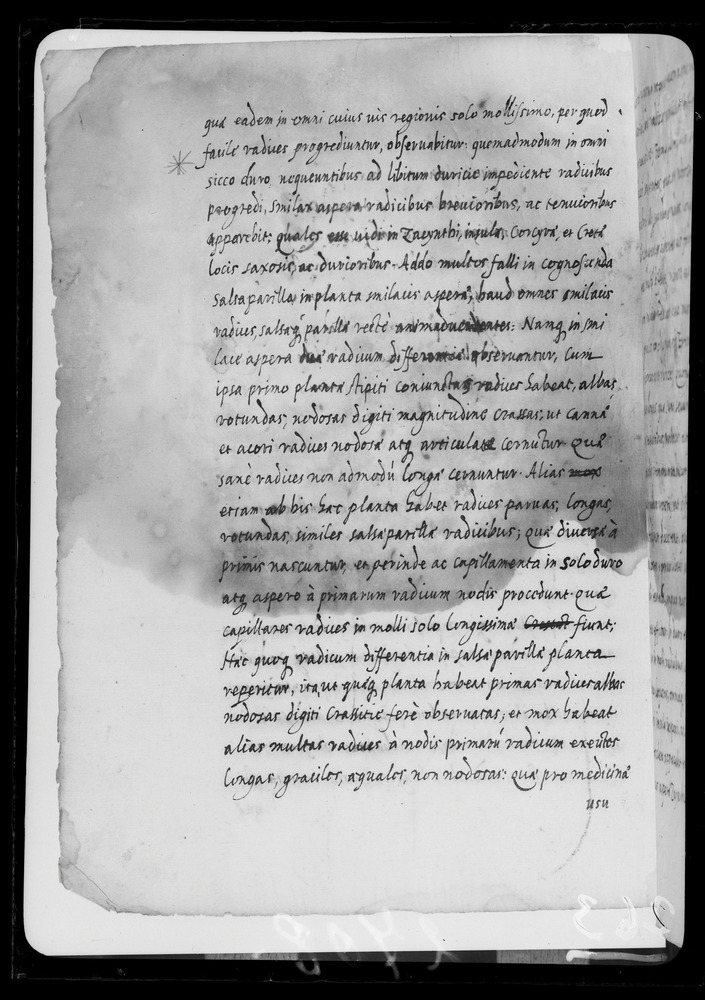 quæ eadem in omni cuius uis regionis solo mollissimo, per quod
facile radices progrediuntur, obseruabitur: quemadmodum in omni
sicco duro nequeuntibus ad libitum duricie impediente radicibus
progredi, Smilax aspera radicibus breuioribus, ac tenuioribus
apparebit: quales esse uidi in Zacynthi, insula, Corcyra, et Creta
locis saxosis, ac durioribus. Addo multos falli in cognoscenda
Salsaparilla in planta smilacis asperæ, haud omnes smilacis
radices, salsaq́ parillæ rectè animaduertentes: Namq in smi
lace aspera duæ radicum differentiæ obseruantur, Cum
ipsa primo plantæ stipiti coniunctas radices habeat, albas,
rotundas, nodosas digiti magnitudine crassas, ut cannæ
et acori radices nodosæ atq articulatæ cernutur. Quæ
sanè radices non admodú longæ cernuntur. Alias mox
etiam ab his hæc planta habet radices paruas, longas,
rotundas, similes salsaparillæ radicibus; quæ diuersæ à
primis nascuntur, et perinde ac capillamenta in solo duro
atq aspero à primarum radicum nodis procedunt. quæ
capillares radices in molli solo longissimæ fiunt;
Hæc quoq radicum differentia in salsaparillæ planta
reperitur, ita, ut quæq planta habeat primas radices albas
nodosas digiti crassitie ferè obseruatas; et mox habeat
alias multas radices à nodis primarú radicum exeütes
longas, graciles, æquales, non nodosas: quæ pro medicinæ
usu
2708
263